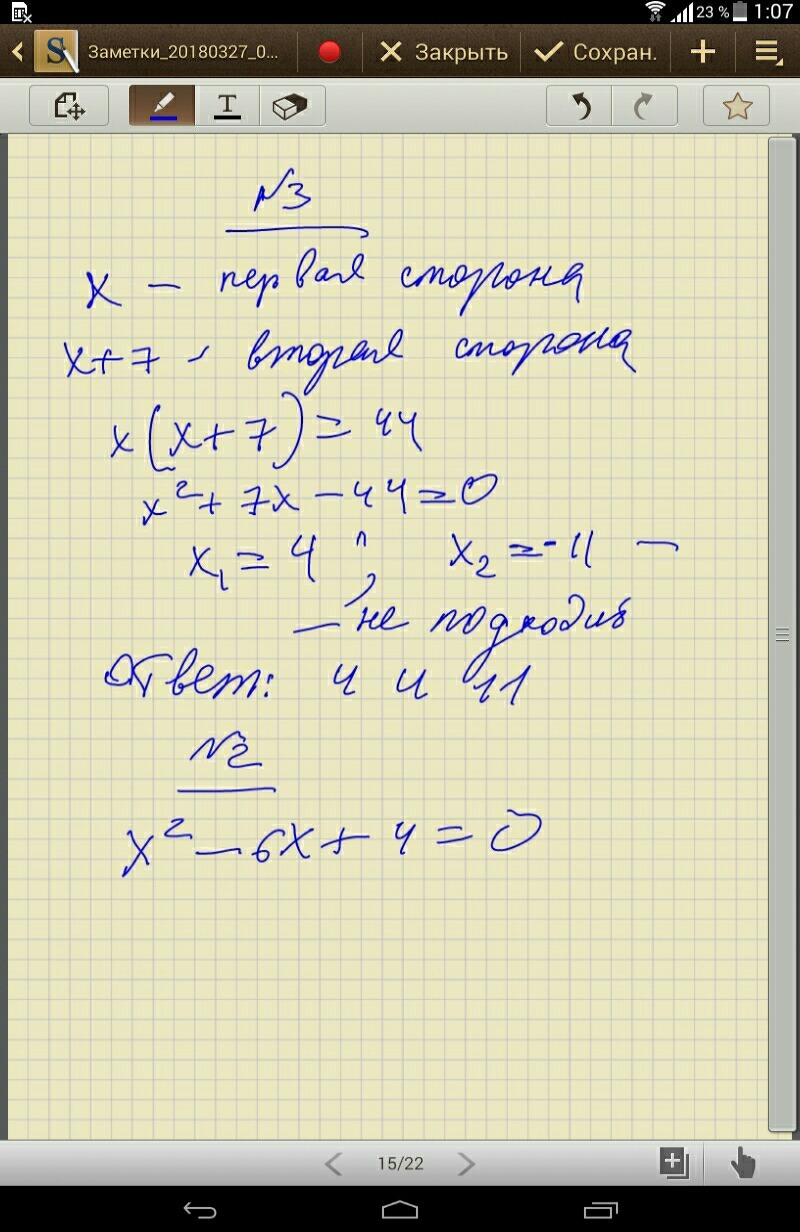 23 % 1:07
Заметки_20180327_0... Закрыть Сохран.
T
N3
x – первая сторона
x+7 – вторая сторона
x(x+7)=44
x²+7x-44=0
x₁=4 ; x₂=-11 –
– не подходит
Ответ: 4 и 11
N2
x²-6x+4=0
15/22